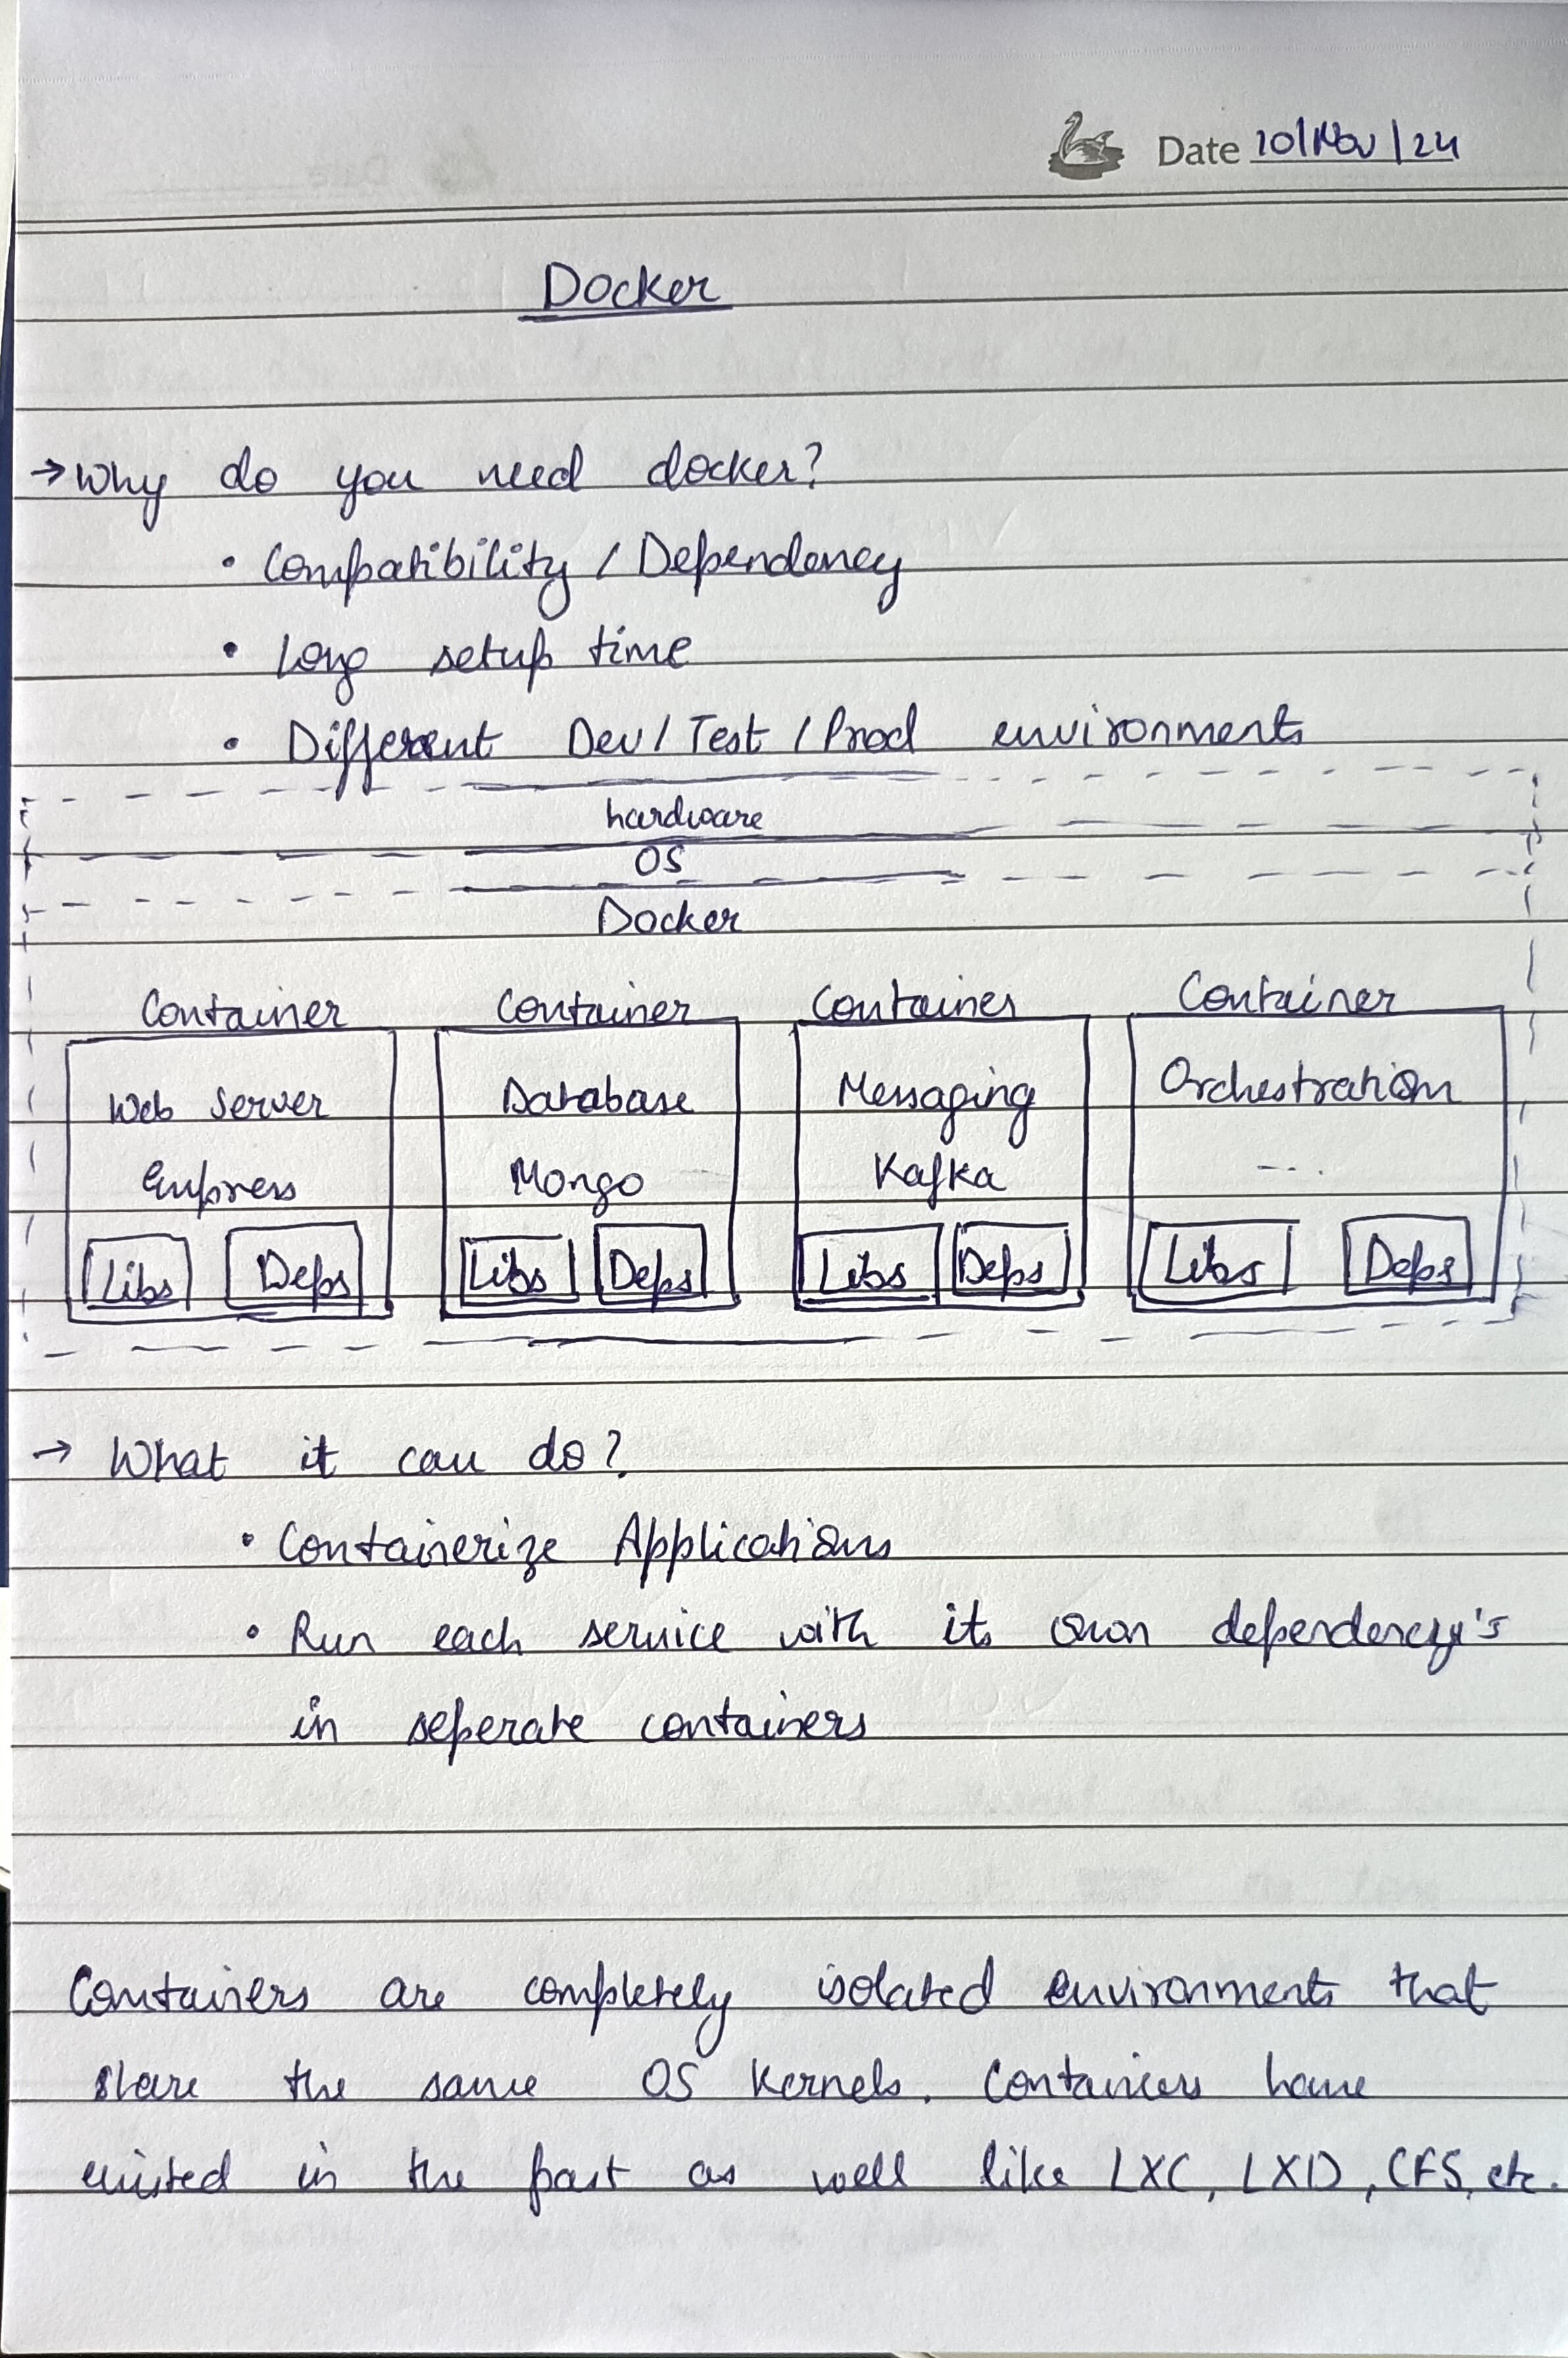 Date 10/Nov/24
Docker
→ Why do you need docker?
• Compatibility / Dependency
• Long setup time
• Different Dev / Test / Prod environments
hardware
OS
Docker
Container Container Container Container
Web Server Database Messaging Orchestration
Express Mongo Kafka ....
Libs Deps Libs Deps Libs Deps Libs Deps
→ What it can do?
• Containerize Applications
• Run each service with its own dependency's
in seperate containers
Containers are completely isolated environments that
share the same OS Kernels. Containers have
existed in the past as well like LXC, LXD, CFS, etc.